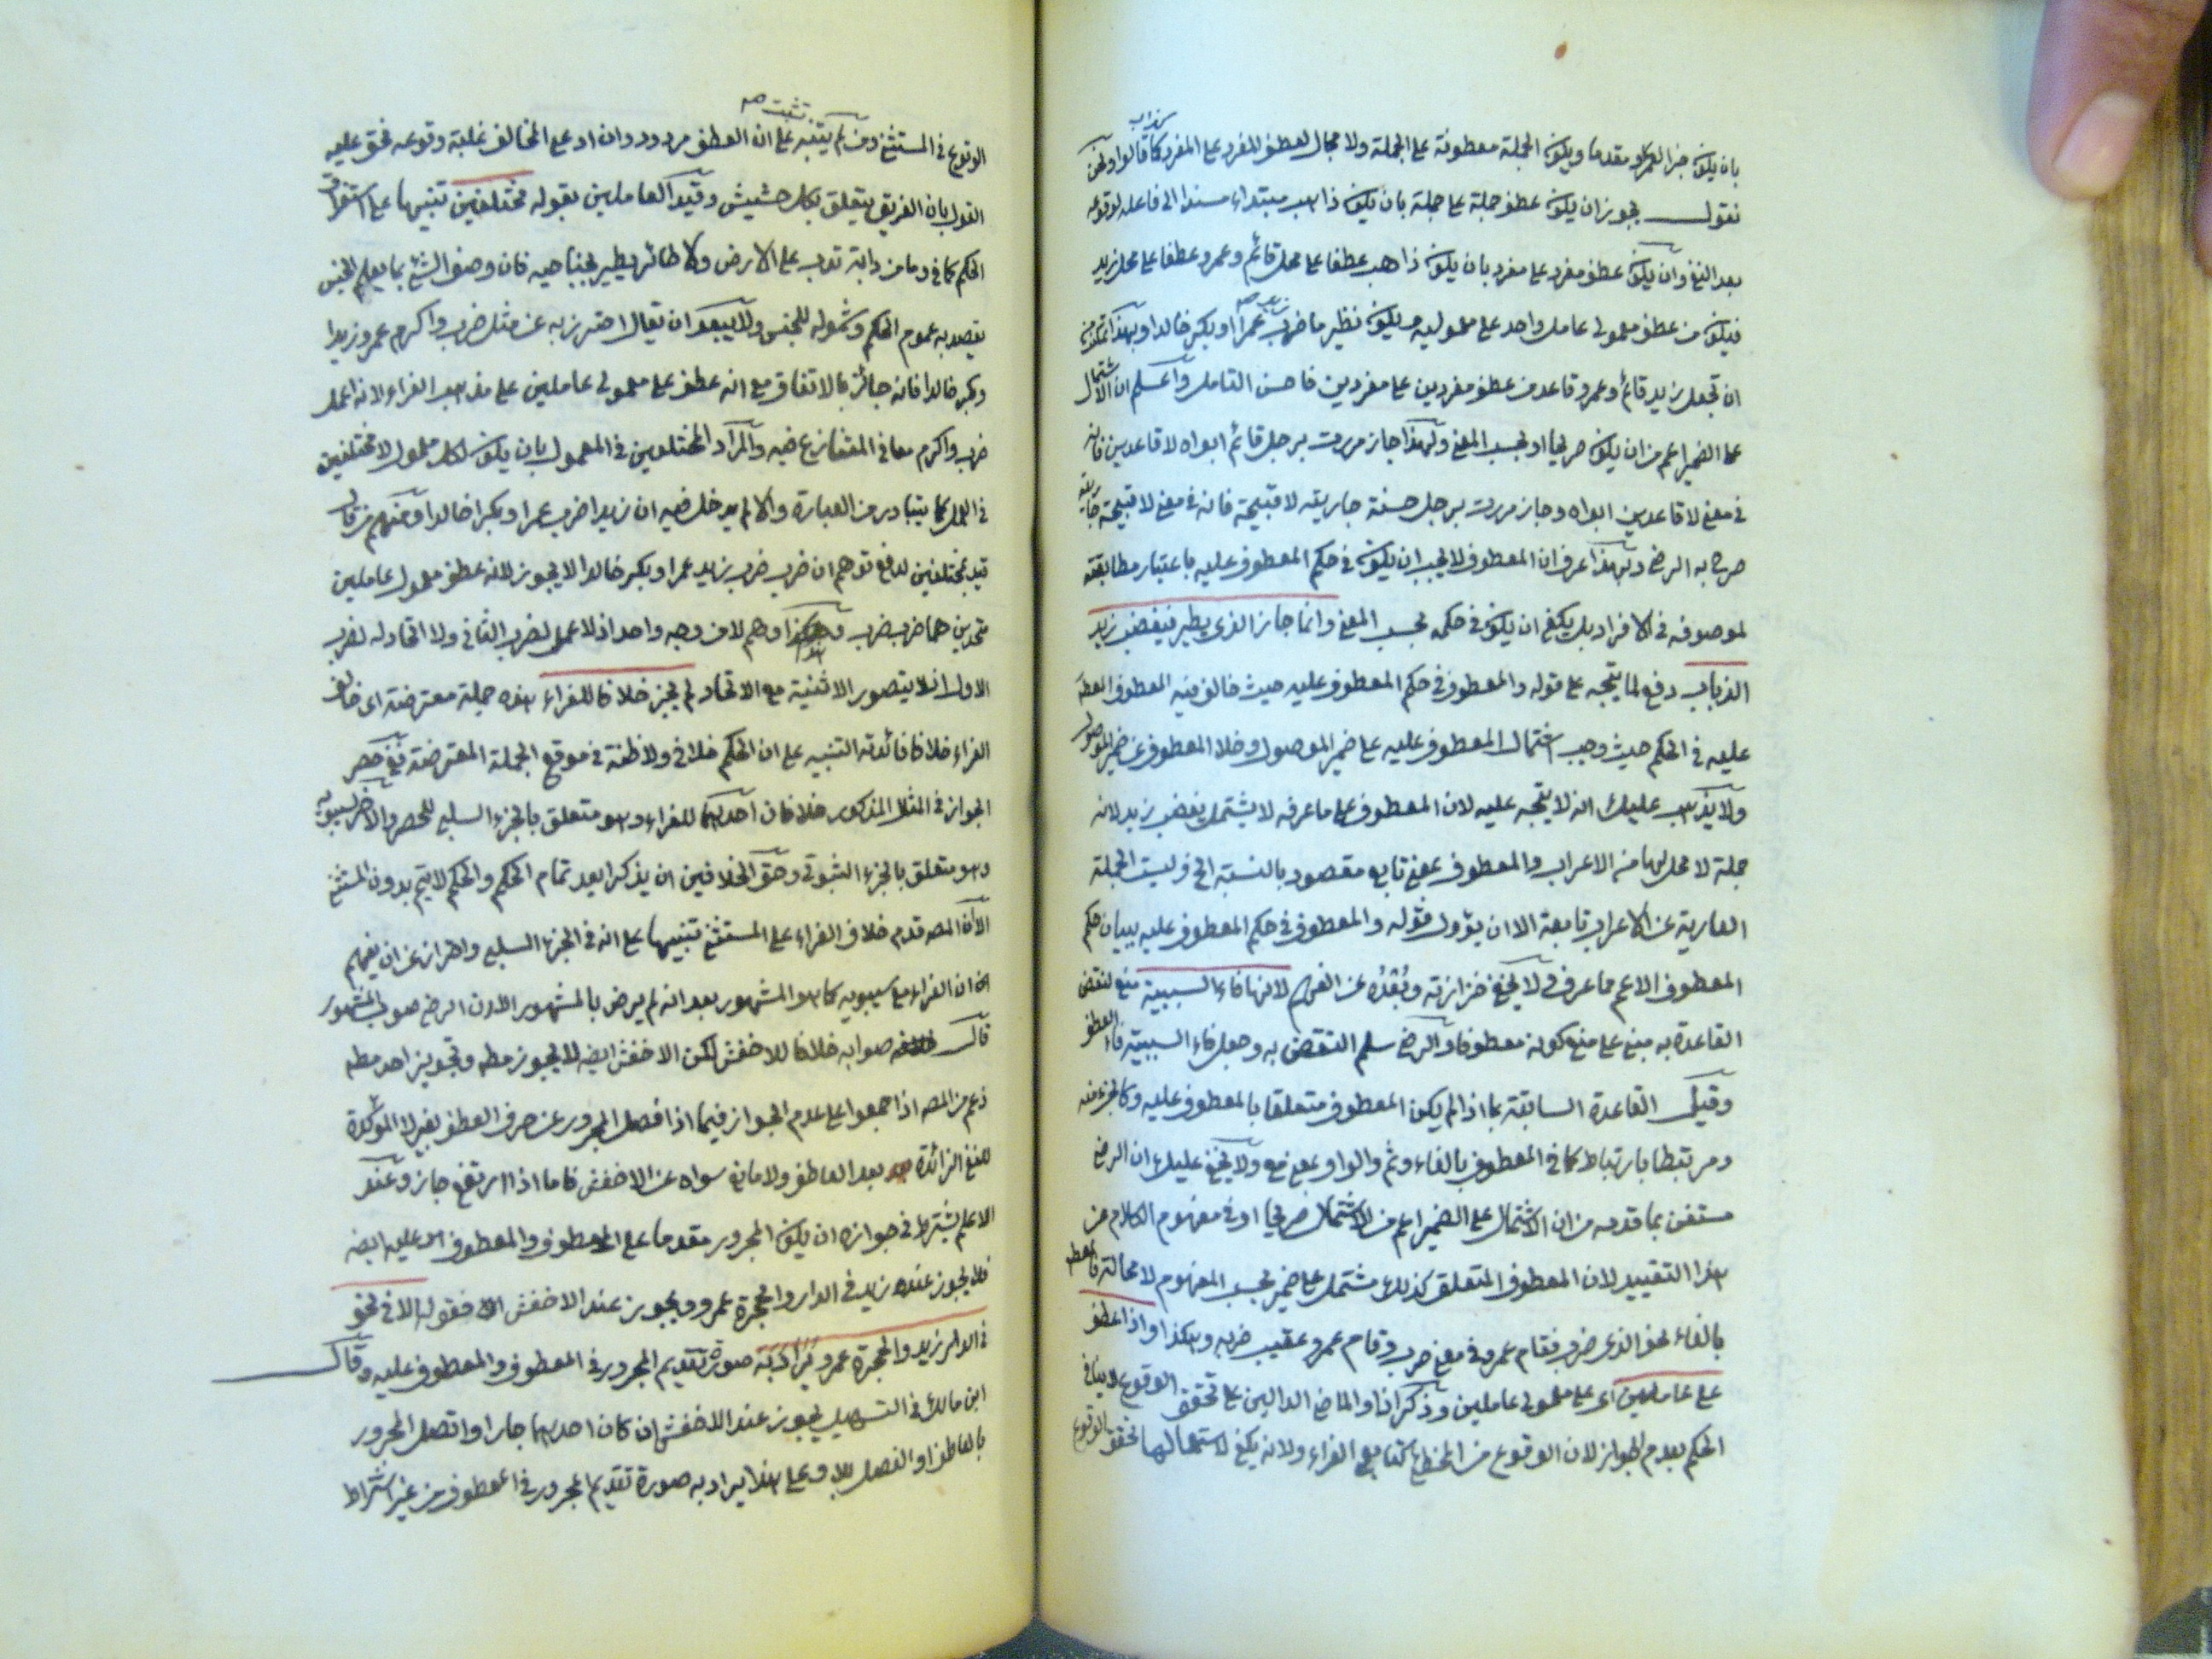 بان يكون خبرا لعمرو مقدما ويكون الجملة معطوفة على الجملة ولا مجال لعطف المفرد على المفرد كما قالوا ونحن
نقول يجوز ان يكون عطف جملة على جملة بان يكون ذاهب مبتداء مسندا الى فاعله لوقوعه
بعد النفي وان يكون عطف مفرد على مفرد بان يكون ذاهب عطفا على محل قائم وعمرو عطفا على محل زيد
فيكون من عطف معمولي عامل واحد على معموليه ويكون نظير ما ضرب زيد عمرا او بكر خالدا وبهذا
ان تجعل زيد قائم وعمرو قاعد من عطف مفردين على مفردين فاحسن التامل واعلم ان الاشتمال
على الضمير اعم من ان يكون صريحا او بحسب المعنى ولهذا جاز مررت برجل قائم ابواه لا قاعدين فانه
في معنى لا قاعدين ابواه وجاز مررت برجل حسنة جاريته لا قبيحة فانه في معنى لا قبيحة جاريته
صرح به الرضي وبهذا عرف ان المعطوف لا يجب ان يكون في حكم المعطوف عليه باعتبار مطابقته
لموصوفه في الافراد بل يكفي ان يكون في حكمه بحسب المعنى وانما جاز الذي يطير فيغضب زيد
الذباب دفع لما يتجه على قوله والمعطوف في حكم المعطوف عليه حيث خالف فيه المعطوف المعطوف
عليه في الحكم حيث وجب اشتمال المعطوف عليه على ضمير الموصول وخلا المعطوف عن ضمير الموصول
ولا يذهب عليك انه لا يتجه عليه لان المعطوف على ما عرفه لا يشتمل يغضب زيد لانه
جملة لا محل لها من الاعراب والمعطوف بمعنى تابع مقصود بالنسبة الخ وليست الجملة
العارية عن الاعراب تابعة الا ان يؤول قوله والمعطوف في حكم المعطوف عليه ببيان حكم
المعطوف الاعم مما عرف ولا يخفى حزازته وبعده عن الفهم لانها فاء السببية منع لنقض
القاعدة به مبني على منع كونه معطوفا والرضي سلم النقض به وجعل فاء السببية فاء العطف
وقيل القاعدة السابقة بما اذا لم يكن المعطوف متعلقا بالمعطوف عليه وكالجزء منه
ومرتبطا بارتباط كما في المعطوف بالفاء وثم والواو بمعنى مع ولا يخفى عليك ان الرضي
مستغن بما قدمه من ان الاشتمال على الضمير اعم من الاشتمال صريحا او في مفهوم الكلام عن
هذا التقييد لان المعطوف المتعلق كذلك مشتمل على ضمير بحسب المفهوم لا محالة فالعطف
بالفاء نحو الذي ضرب فقام عمرو في معنى ضرب وقام عمرو عقيب ضربه وهكذا واذا عطف
على عاملين اي على معمولي عاملين وذكر اذا والماضي الدالين على تحقق الوقوع لا ينافي
الحكم بعدم الجواز لان الوقوع من المخطئ كتابع الفراء ولانه يكفي لاستعمالها تحقق الوقوع
الوقوع في المستثنى ومن لم يتنبه على ان العطف مردود وان ادعى المخالف غلبة وقوعه فحق عليه
القول بان الغريق يتعلق بكل حشيش وقيد العاملين بقوله مختلفين تنبيها على استغراق
الحكم كما في وما من دابة تدب على الارض ولا طائر يطير بجناحيه فان وصف الشئ بما يعم الجنس
يقصد به عموم الحكم وشموله للجنس ولا يبعد ان يقال احترز به عن مثل ضرب واكرم عمرو زيدا
وبكر خالدا فانه جائز بالاتفاق مع انه عطف على معمولي عاملين على مذهب الفراء لانه اعمل
ضرب واكرم معا في المتنازع فيه والمراد المختلفين في المعمول بان يكون لكل معمول لا مختلفين
في العمل كما يتبادر من العبارة والا لم يدخل فيه ان زيدا ضرب عمرا وبكرا خالدا ومنهم من قال
قيد بمختلفين لدفع توهم ان ضرب ضرب زيد عمرا وبكر خالدا لا يجوز لانه عطف معمول عاملين
متحدين هما ضرب ضرب وهذا وهم لا من وجه واحد اذ لا عمل لضرب الثاني ولا اتحاد له لضرب
الاول اذ لا يتصور الاثنينية مع الاتحاد لم يجز خلافا للفراء هذه جملة معترضة اي خالف
الفراء خلافا فائدته التنبيه على ان الحكم خلافي ولا ظنة في موقع الجملة المعترضة ففي حصر
الجواز في المثل المذكور خلافان احدهما للفراء وهو متعلق بالجزء السلبي للحصر والاخر لسيبويه
وهو متعلق بالجزء الثبوتي وحق الخلافين ان يذكرا بعد تمام الحكم والحكم لا يتم بدون المستثنى
الا ان المصه قدم خلاف الفراء على المستثنى تنبيها على انه في الجزء السلبي واحترازا عن ان يفهم
ان الفراء مع سيبويه كما هو المشهور بعد انه لم يرض بالمشهور الا ان الرضي صوب المشهور
قال صوابه خلافا للاخفش لكن الاخفش ايضه لا يجوز مطه وتجويز احد مطه
زعم من المصه اذ اجمعوا على عدم الجواز فيما اذا فصل المجرور عن حرف العطف بغير لا المؤكدة
للنفي الزائدة بعد العاطف ولا مانع سواه عن الاخفش فاما اذا ارتفع جاز وعند
الاعلم يشترط في جوازه ان يكون المجرور مقدما على المعطوف والمعطوف عليه ايضه
فلا يجوز عنده زيد في الدار والحجرة عمرو ويجوز عند الاخفش فقوله الا في نحو
في الدار زيد والحجرة عمرو يراد به صورة تقديم المجرور في المعطوف والمعطوف عليه وقال
ابن مالك في التسهيل يجوز عند الاخفش ان كان احدهما جارا واتصل المجرور
بالعاطف او انفصل بلا وعلى هذا يراد به صورة تقديم المجرور في المعطوف من غير اشتراط